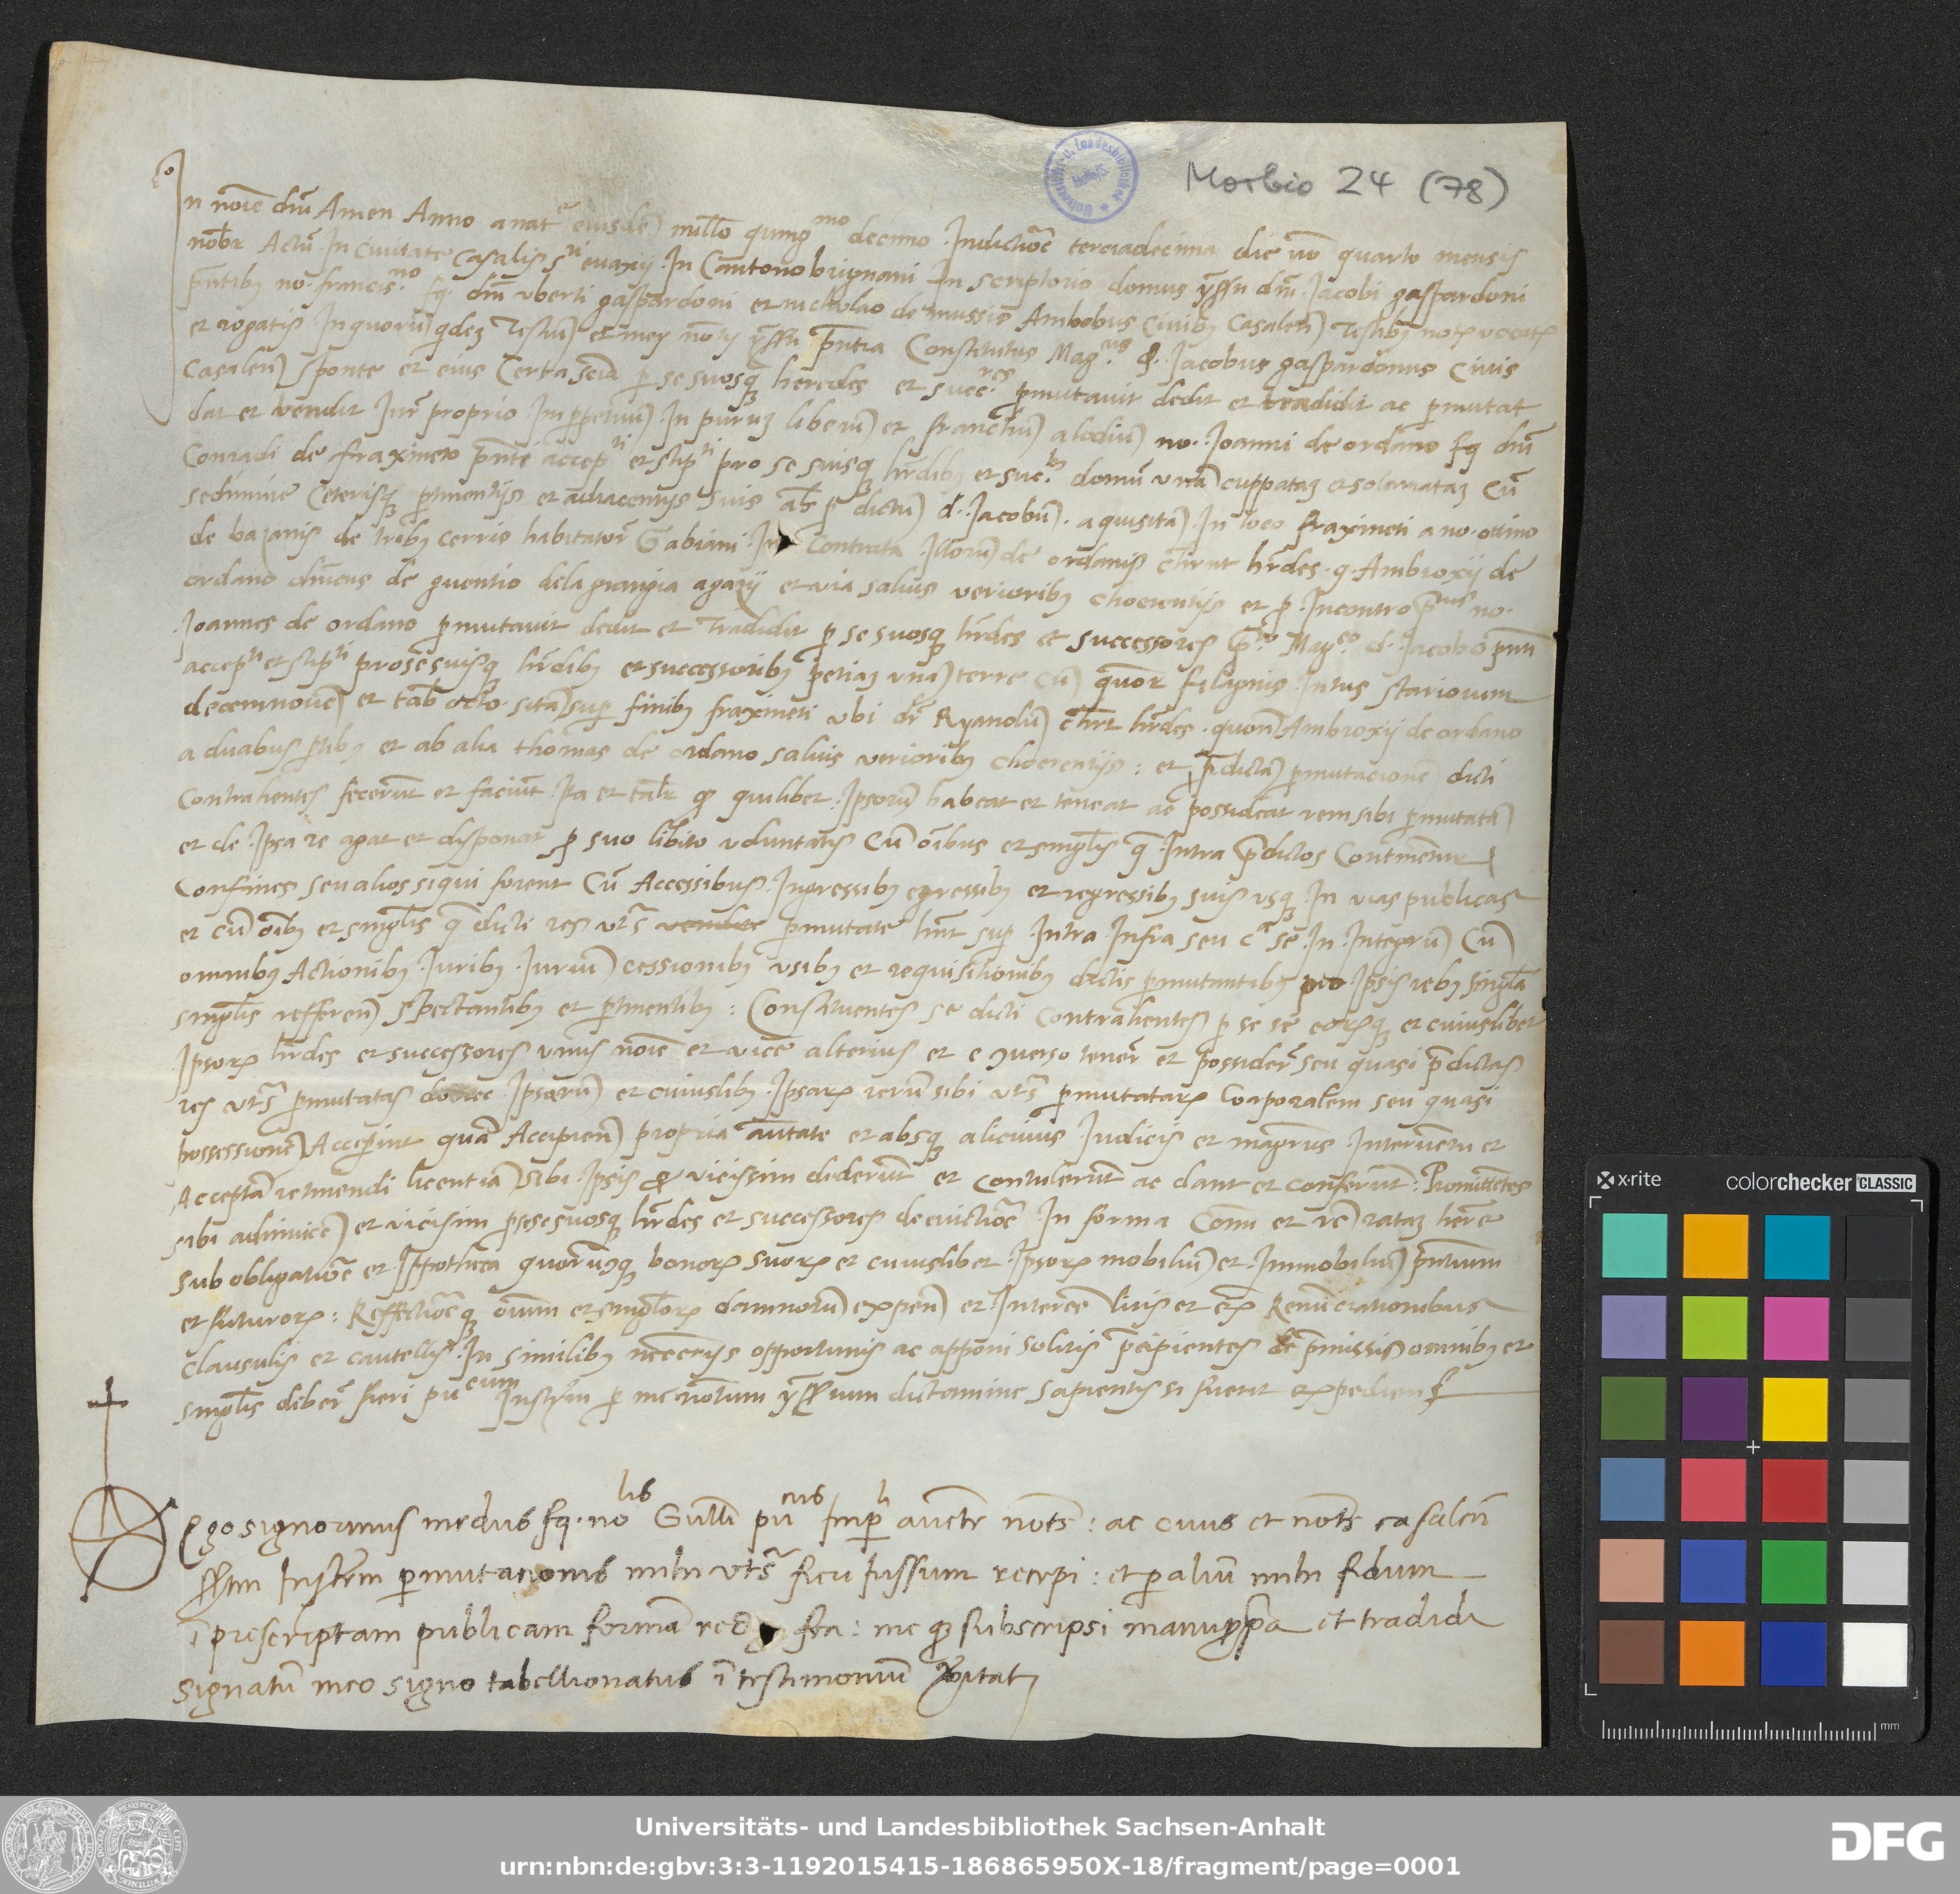 Morbio 24 (78)
In noīe dn̄i Amen Anno a natᵉ eiusdē mill̄o quingᵐᵒ decimo Indictiōe terciadecima die vō quarto mensis
nobr̄ Actū In Civitate Casalis sᵗⁱ evaxij In Cantono brignani In scriptorio domus dn̄i Iacobi gaspardoni
pn̄tibꝫ no. francisⁿᵒ fq. dn̄i vberti gaspardoni et nicholao de mussis Ambobus Civibꝫ Casalen̄ Testibꝫ notꝭ vocatꝭ
et rogatis In quorū qdeꝫ Testiū et mey notꝭ pn̄tia Constitutus Magᶜᵘˢ d. Iacobus gaspardonus Civis
Casalen̄ sponte et eius Certa sciā p se suosqꝫ heredes et succʳᵉˢ pmutavit dedit et tradidit ac pmutat
dat et vendit Iurē proprio In ppetuū In puruꝫ liberū et franchū alodiū no. Ioanni de ordano fq dn̄i
Conradi de fraxineto pn̄te accepᵗⁱ et stipᵗⁱ pro se suisqꝫ hr̄dibꝫ et sucᵇꝫ domū vnā cuppataꝫ et solariataꝫ Cū
sedimine Ceterisqꝫ ptinentijs et adiacentijs suis ab dictū d. Iacobū aquisitā In loco fraxineti a no. ottino
de bazanis de tribꝫ cerris habitator̄ Gabiani In Contrata Illorū de ordanis chr̄nt hr̄des q. Ambroxij de
ordano de guentio dela grangia agazij et via salvis verioribꝫ choerentijs et p Incontro no.
Ioannes de ordano pmutavit dedit et Tradidit p se suosqꝫ hr̄des et successores Magᶜᵒ d. Iacobo pn̄ti
accepᵗⁱ et stipᵗⁱ pro se suisqꝫ hr̄dibꝫ et successoribꝫ petiaꝫ vnā terre cū quor̄ filagnis Intus stariorum
decemnovē et tab̄ octo sitā sup finibꝫ fraxineti vbi dr̄ Ryanolū chr̄t hr̄des quon̄ Ambroxij de ordano
a duabus ptibꝫ et ab alia thomas de ordano salvis verioribꝫ choerentijs : et pdictā pmutacionē dicti
Contrahentes fecerūt et faciūt Ita et tal̄r qd quilibet Ipsorū habeat et teneat ac possideat rem sibi pmutatā
et de Ipsa re agat et disponat p suo libito voluntatis Cū oībus et singl̄is q Intra pdictos Continentur
Confines seu alios si qui forent Cū Accessibus Ingressibꝫ egressibꝫ et regressibꝫ suis usqꝫ In vias publicas
et cū oībꝫ et singl̄is q dicti res vts̄ vendite pmutate hn̄t sup Intra Infra seu In Integrū Cū
omnibus Actionibꝫ Iuribꝫ Iuriū cessionibꝫ usibꝫ et requisitionibꝫ dictis pmutantibꝫ pro Ipsis rebꝫ singl̄a
singl̄is refferen̄ spectantibꝫ et ptinentibꝫ : Constituentes se dicti Contrahentes p se se eorꝭqꝫ et cuiuslibet
Ipsorꝭ hr̄des et successores vnus noīe et vice alterius et e ꝯverso tener̄ et possider̄ seu quasi pdictas
res vts̄ pmutatas donec Ipsarū et cuiuslibꝫ Ipsarꝭ rerū sibi vts̄ pmutatarꝭ Corporalem seu quasi
possessionē Accepint quā Accipien̄ propria autate et absqꝫ alicuius Iudicis et magrūs Interventu et
Acceptā retinendi licentiā sibi Ipsis vicissim dederūt et Contulerūt ac dant et Conferūt : Promittētes
sibi adinvicē et vicisim p se se suosqꝫ hr̄des et successores de evictiōe In forma Comn̄i et rataꝫ her̄e
sub obligatiōe et Ippotheca quorūcqꝫ bonorꝭ suorꝭ et cuiuslibet Ipsorꝭ mobiliū et Immobiliū pn̄tium
et futurorꝭ : Reffectiōeqꝫ oīum et singl̄orꝭ damnorū expen̄ et Interesse litis et exꝭ Renūcrationibus
clausulis et cautellis In similibꝫ necc̄rijs opportunis ac apponi solitis pcipientes de pmissis omnibꝫ et
singl̄is deber̄ fieri puᶜᵘᵐ Instrm̄ p me notum dictamine sapientis si fuerit expediens
Ego signorinus medus fq. noˡⁱˢ Gulli puᶜᵘˢ Impˡⁱ aucte nots̄ : ac civis et nots̄ casalen̄
Instrm̄ pmutationis mihi vts̄ fieri iussum recepi : et p aliū mihi fidum
ī prescriptam publicam formā feci : me qꝫ subscripsi manu ppa et tradidi
signatū meo signo tabellionatus ī testimoniū vitatꝭ
x-rite
colorchecker CLASSIC
mm
Universitäts- und Landesbibliothek Sachsen-Anhalt
urn:nbn:de:gbv:3:3-1192015415-186865950X-18/fragment/page=0001
DFG